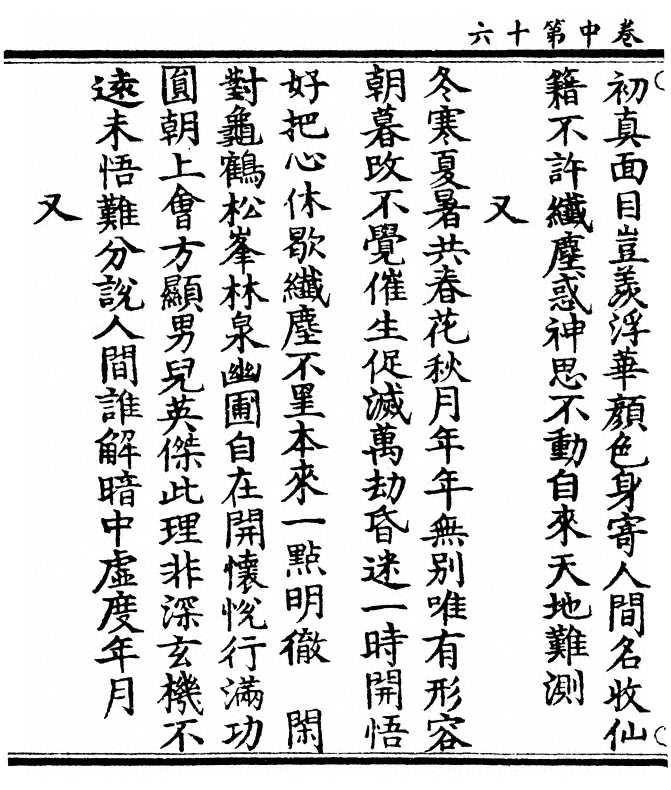 卷中第十六
初真面目豈羨浮華顏色身寄人間名收仙
籍不許纖塵惑神思不動自來天地難測
又
冬寒夏暑共春花秋月年年無别唯有形容
朝暮改不覺催生促滅萬劫昏迷一時開悟
好把心休歇纖塵不罣本來一點明徹　閑
對龜鶴松峯林泉幽圃自在開懷悅行滿功
圓朝上會方顯男兒英傑此理非深玄機不
遠未悟難分說人間誰解暗中虛度年月
又